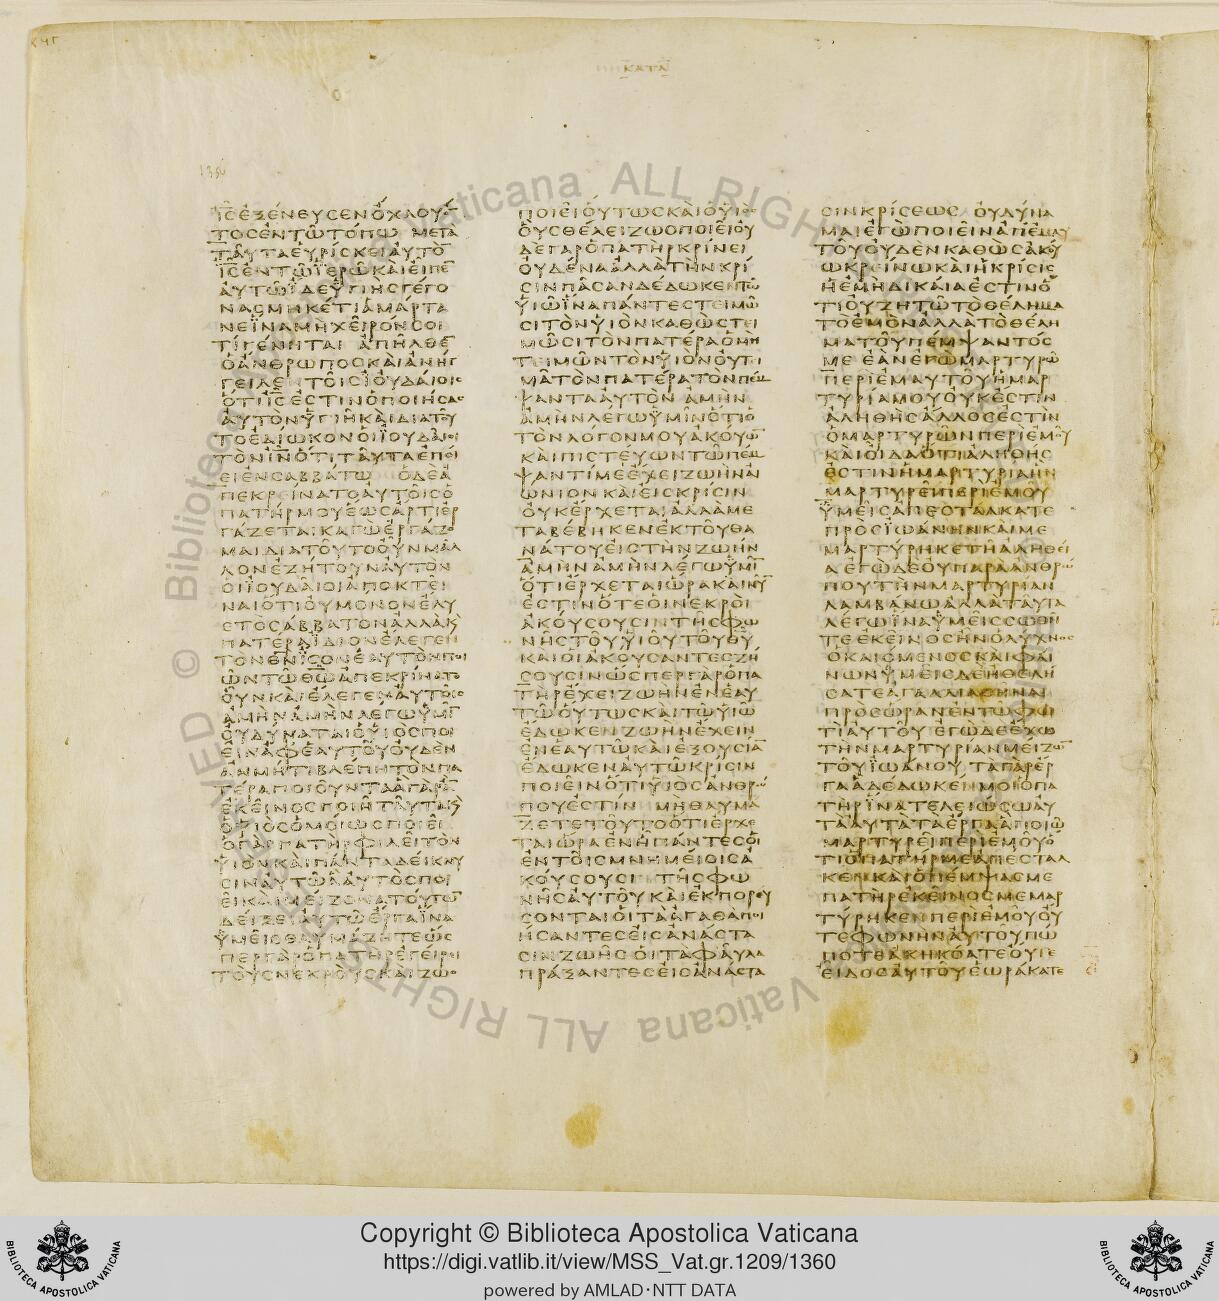 ΚΑΤΑ
ΙϹ ΕΞΕΝΕΥϹΕΝ ΟΧΛΟΥ ΟΝ
ΤΟϹ ΕΝ ΤΩ ΤΟΠΩ ΜΕΤΑ
ΤΑΥΤΑ ΕΥΡΙϹΚΕΙ ΑΥΤΟΝ
ΙϹ ΕΝ ΤΩ ΙΕΡΩ ΚΑΙ ΕΙΠΕΝ
ΑΥΤΩ ΙΔΕ ΥΓΙΗϹ ΓΕΓΟ
ΝΑϹ ΜΗΚΕΤΙ ΑΜΑΡΤΑ
ΝΕ ΙΝΑ ΜΗ ΧΕΙΡΟΝ ϹΟΙ
ΤΙ ΓΕΝΗΤΑΙ ΑΠΗΛΘΕΝ
Ο ΑΝΘΡΩΠΟϹ ΚΑΙ ΑΝΗΓ
ΓΕΙΛΕΝ ΤΟΙϹ ΙΟΥΔΑΙΟΙϹ
ΟΤΙ ΙϹ ΕϹΤΙΝ Ο ΠΟΙΗϹΑϹ
ΑΥΤΟΝ ΥΓΙΗ ΚΑΙ ΔΙΑ ΤΟΥ
ΤΟ ΕΔΙΩΚΟΝ ΟΙ ΙΟΥΔΑΙΟΙ
ΤΟΝ ΙΝ ΟΤΙ ΤΑΥΤΑ ΕΠΟΙ
ΕΙ ΕΝ ϹΑΒΒΑΤΩ Ο ΔΕ Α
ΠΕΚΡΕΙΝΑΤΟ ΑΥΤΟΙϹ Ο
ΠΑΤΗΡ ΜΟΥ ΕΩϹ ΑΡΤΙ ΕΡ
ΓΑΖΕΤΑΙ ΚΑΓΩ ΕΡΓΑΖΟ
ΜΑΙ ΔΙΑ ΤΟΥΤΟ ΟΥΝ ΜΑΛ
ΛΟΝ ΕΖΗΤΟΥΝ ΑΥΤΟΝ
ΟΙ ΙΟΥΔΑΙΟΙ ΑΠΟΚΤΕΙ
ΝΑΙ ΟΤΙ ΟΥ ΜΟΝΟΝ ΕΛΥ
Ε ΤΟ ϹΑΒΒΑΤΟΝ ΑΛΛΑ Κ
ΠΑΤΕΡΑ ΙΔΙΟΝ ΕΛΕΓΕΝ
ΤΟΝ ΘΝ ΙϹΟΝ ΕΑΥΤΟΝ ΠΟΙ
ΩΝ ΤΩ ΘΩ ΑΠΕΚΡΙΝΑΤΟ
ΟΥΝ ΚΑΙ ΕΛΕΓΕΝ ΑΥΤΟΙϹ
ΑΜΗΝ ΑΜΗΝ ΛΕΓΩ ΥΜΙΝ
ΟΥ ΔΥΝΑΤΑΙ Ο ΥΙΟϹ ΠΟΙ
ΕΙΝ ΑΦ ΕΑΥΤΟΥ ΟΥΔΕΝ
ΑΝ ΜΗ ΤΙ ΒΛΕΠΗ ΤΟΝ ΠΑ
ΤΕΡΑ ΠΟΙΟΥΝΤΑ Α ΓΑΡ ΑΝ
ΕΚΕΙΝΟϹ ΠΟΙΗ ΤΑΥΤΑ Κ
Ο ΥΙΟϹ ΟΜΟΙΩϹ ΠΟΙΕΙ
Ο ΓΑΡ ΠΑΤΗΡ ΦΙΛΕΙ ΤΟΝ
ΥΙΟΝ ΚΑΙ ΠΑΝΤΑ ΔΕΙΚΝΥ
ϹΙΝ ΑΥΤΩ Α ΑΥΤΟϹ ΠΟΙ
ΕΙ ΚΑΙ ΜΕΙΖΟΝΑ ΤΟΥΤΩΝ
ΔΕΙΞΕΙ ΑΥΤΩ ΕΡΓΑ ΙΝΑ
ΥΜΕΙϹ ΘΑΥΜΑΖΗΤΕ ΩϹ
ΠΕΡ ΓΑΡ Ο ΠΑΤΗΡ ΕΓΕΙΡΕΙ
ΤΟΥϹ ΝΕΚΡΟΥϹ ΚΑΙ ΖΩΟ
ΠΟΙΕΙ ΟΥΤΩϹ ΚΑΙ Ο ΥΙΟϹ
ΟΥϹ ΘΕΛΕΙ ΖΩΟΠΟΙΕΙ ΟΥ
ΔΕ ΓΑΡ Ο ΠΑΤΗΡ ΚΡΙΝΕΙ
ΟΥΔΕΝΑ ΑΛΛΑ ΤΗΝ ΚΡΙ
ϹΙΝ ΠΑϹΑΝ ΔΕΔΩΚΕΝ ΤΩ
ΥΙΩ ΙΝΑ ΠΑΝΤΕϹ ΤΕΙΜΩ
ϹΙ ΤΟΝ ΥΙΟΝ ΚΑΘΩϹ ΤΕΙ
ΜΩϹΙ ΤΟΝ ΠΑΤΕΡΑ Ο ΜΗ
ΤΕΙΜΩΝ ΤΟΝ ΥΙΟΝ ΟΥ ΤΙ
ΜΑ ΤΟΝ ΠΑΤΕΡΑ ΤΟΝ ΠΕΜ
ΨΑΝΤΑ ΑΥΤΟΝ ΑΜΗΝ
ΑΜΗΝ ΛΕΓΩ ΥΜΙΝ ΟΤΙ Ο
ΤΟΝ ΛΟΓΟΝ ΜΟΥ ΑΚΟΥΩΝ
ΚΑΙ ΠΙϹΤΕΥΩΝ ΤΩ ΠΕΜ
ΨΑΝΤΙ ΜΕ ΕΧΕΙ ΖΩΗΝ ΑΙ
ΩΝΙΟΝ ΚΑΙ ΕΙϹ ΚΡΙϹΙΝ
ΟΥΚ ΕΡΧΕΤΑΙ ΑΛΛΑ ΜΕ
ΤΑΒΕΒΗΚΕΝ ΕΚ ΤΟΥ ΘΑ
ΝΑΤΟΥ ΕΙϹ ΤΗΝ ΖΩΗΝ
ΑΜΗΝ ΑΜΗΝ ΛΕΓΩ ΥΜΙΝ
ΟΤΙ ΕΡΧΕΤΑΙ ΩΡΑ ΚΑΙ ΝΥΝ
ΕϹΤΙΝ ΟΤΕ ΟΙ ΝΕΚΡΟΙ
ΑΚΟΥϹΟΥϹΙΝ ΤΗϹ ΦΩ
ΝΗϹ ΤΟΥ ΥΙΟΥ ΤΟΥ ΘΥ
ΚΑΙ ΟΙ ΑΚΟΥϹΑΝΤΕϹ ΖΗ
ϹΟΥϹΙΝ ΩϹΠΕΡ ΓΑΡ Ο ΠΑ
ΤΗΡ ΕΧΕΙ ΖΩΗΝ ΕΝ ΕΑΥ
ΤΩ ΟΥΤΩϹ ΚΑΙ ΤΩ ΥΙΩ
ΕΔΩΚΕΝ ΖΩΗΝ ΕΧΕΙΝ
ΕΝ ΕΑΥΤΩ ΚΑΙ ΕΞΟΥϹΙΑΝ
ΕΔΩΚΕΝ ΑΥΤΩ ΚΡΙϹΙΝ
ΠΟΙΕΙΝ ΟΤΙ ΥΙΟϹ ΑΝΘΡΩ
ΠΟΥ ΕϹΤΙΝ ΜΗ ΘΑΥΜΑ
ΖΕΤΕ ΤΟΥΤΟ ΟΤΙ ΕΡΧΕ
ΤΑΙ ΩΡΑ ΕΝ Η ΠΑΝΤΕϹ ΟΙ
ΕΝ ΤΟΙϹ ΜΝΗΜΕΙΟΙϹ Α
ΚΟΥϹΟΥϹΙ ΤΗϹ ΦΩ
ΝΗϹ ΑΥΤΟΥ ΚΑΙ ΕΚΠΟΡΕΥ
ϹΟΝΤΑΙ ΟΙ ΤΑ ΑΓΑΘΑ ΠΟΙ
ΗϹΑΝΤΕϹ ΕΙϹ ΑΝΑϹΤΑ
ϹΙΝ ΖΩΗϹ ΟΙ ΤΑ ΦΑΥΛΑ
ΠΡΑΞΑΝΤΕϹ ΕΙϹ ΑΝΑϹΤΑ
ϹΙΝ ΚΡΙϹΕΩϹ ΟΥ ΔΥΝΑ
ΜΑΙ ΕΓΩ ΠΟΙΕΙΝ ΑΠ ΕΜΑΥ
ΤΟΥ ΟΥΔΕΝ ΚΑΘΩϹ ΑΚΟΥ
Ω ΚΡΕΙΝΩ ΚΑΙ Η ΚΡΙϹΙϹ
Η ΕΜΗ ΔΙΚΑΙΑ ΕϹΤΙΝ Ο
ΤΙ ΟΥ ΖΗΤΩ ΤΟ ΘΕΛΗΜΑ
ΤΟ ΕΜΟΝ ΑΛΛΑ ΤΟ ΘΕΛΗ
ΜΑ ΤΟΥ ΠΕΜΨΑΝΤΟϹ
ΜΕ ΕΑΝ ΕΓΩ ΜΑΡΤΥΡΩ
ΠΕΡΙ ΕΜΑΥΤΟΥ Η ΜΑΡ
ΤΥΡΙΑ ΜΟΥ ΟΥΚ ΕϹΤΙΝ
ΑΛΗΘΗϹ ΑΛΛΟϹ ΕϹΤΙΝ
Ο ΜΑΡΤΥΡΩΝ ΠΕΡΙ ΕΜΟΥ
ΚΑΙ ΟΙΔΑ ΟΤΙ ΑΛΗΘΗϹ
ΕϹΤΙΝ Η ΜΑΡΤΥΡΙΑ ΗΝ
ΜΑΡΤΥΡΕΙ ΠΕΡΙ ΕΜΟΥ
ΥΜΕΙϹ ΑΠΕϹΤΑΛΚΑΤΕ
ΠΡΟϹ ΙΩΑΝΗΝ ΚΑΙ ΜΕ
ΜΑΡΤΥΡΗΚΕ ΤΗ ΑΛΗΘΕΙ
Α ΕΓΩ ΔΕ ΟΥ ΠΑΡΑ ΑΝΘΡΩ
ΠΟΥ ΤΗΝ ΜΑΡΤΥΡΙΑΝ
ΛΑΜΒΑΝΩ ΑΛΛΑ ΤΑΥΤΑ
ΛΕΓΩ ΙΝΑ ΥΜΕΙϹ ϹΩΘΗ
ΤΕ ΕΚΕΙΝΟϹ ΗΝ Ο ΛΥΧΝΟϹ
Ο ΚΑΙΟΜΕΝΟϹ ΚΑΙ ΦΑΙ
ΝΩΝ ΥΜΕΙϹ ΔΕ ΗΘΕΛΗ
ϹΑΤΕ ΑΓΑΛΛΙΑΘΗΝΑΙ
ΠΡΟϹ ΩΡΑΝ ΕΝ ΤΩ ΦΩ
ΤΙ ΑΥΤΟΥ ΕΓΩ ΔΕ ΕΧΩ
ΤΗΝ ΜΑΡΤΥΡΙΑΝ ΜΕΙΖΩΝ
ΤΟΥ ΙΩΑΝΟΥ ΤΑ ΓΑΡ ΕΡ
ΓΑ Α ΔΕΔΩΚΕΝ ΜΟΙ Ο ΠΑ
ΤΗΡ ΙΝΑ ΤΕΛΕΙΩϹΩ ΑΥ
ΤΑ ΑΥΤΑ ΤΑ ΕΡΓΑ Α ΠΟΙΩ
ΜΑΡΤΥΡΕΙ ΠΕΡΙ ΕΜΟΥ Ο
ΤΙ Ο ΠΑΤΗΡ ΜΕ ΑΠΕϹΤΑΛ
ΚΕΝ ΚΑΙ Ο ΠΕΜΨΑϹ ΜΕ
ΠΑΤΗΡ ΕΚΕΙΝΟϹ ΜΕΜΑΡ
ΤΥΡΗΚΕΝ ΠΕΡΙ ΕΜΟΥ ΟΥ
ΤΕ ΦΩΝΗΝ ΑΥΤΟΥ ΠΩ
ΠΟΤΕ ΑΚΗΚΟΑΤΕ ΟΥΤΕ
ΕΙΔΟϹ ΑΥΤΟΥ ΕΩΡΑΚΑΤΕ
Copyright © Biblioteca Apostolica Vaticana
https://digi.vatlib.it/view/MSS_Vat.gr.1209/1360
powered by AMLAD·NTT DATA